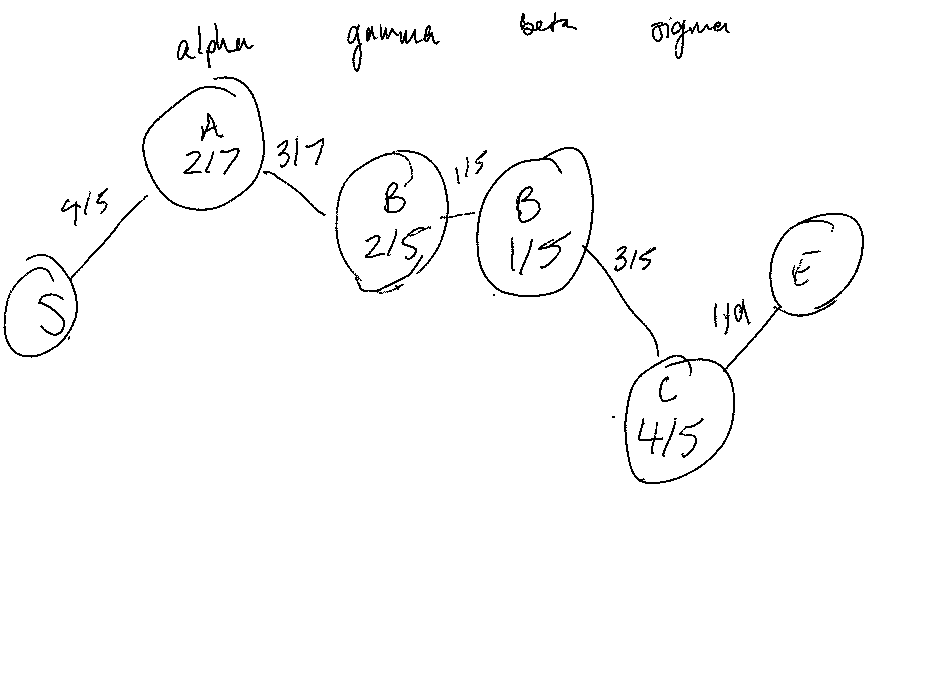 alpha gamma beta sigma
A
2/7
3/7
4/5
S
B
2/5
1/5
B
1/5
3/5
E
C
4/5